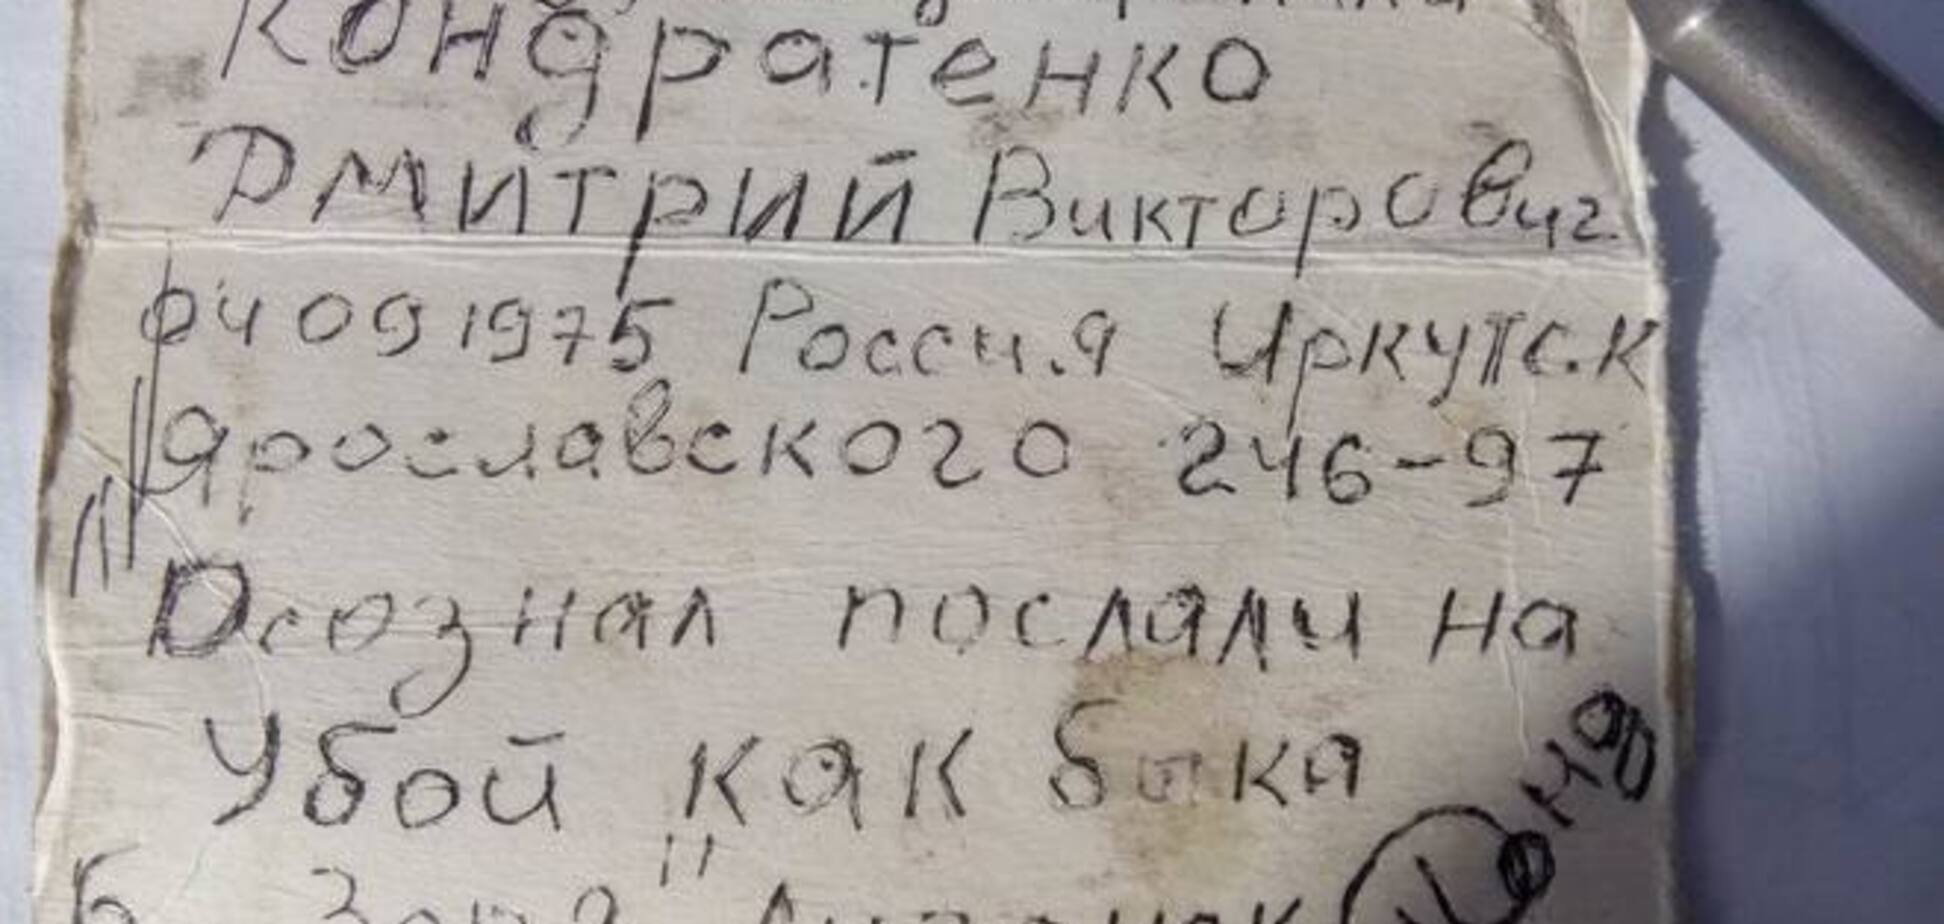 Кондратенко
Дмитрий Викторович
04091975 Россия Иркутск
Ярославского 246-97
"Осознал послали на
Убой как быка"